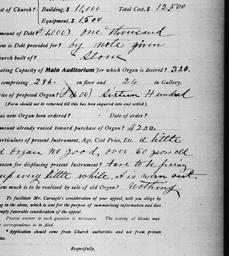 st of Church? { Building, $ 11,000 Total Cost, $ 12,500
Equipment, $ 1,500
mount of Debt? $ 1,000) one thousand
ow is Debt provided for? by note given
Church built of? Stone
ating Capacity of Main Auditorium for which Organ is desired? 320.
comprising 296. on floor and 24 in Gallery.
rice of proposed Organ? $ 1600) Sixteen Hundred
(Form should not be returned till this has been enquired into and settled.)
as new Organ been ordered? Date of order?
mount already raised toward purchase of Organ? $ 200.
articulars of present Instrument, Age, Cost Price, Etc. A little
d organ no good, over 50 years old
eason for displacing present Instrument? Have to be fixing
up every little while it is worn out.
ow much is to be realized by sale of old Organ? Nothing
To facilitate Mr. Carnegie's consideration of your appeal, will you oblige by
ing in the above, which is sent for the purpose of summarizing information and does
imply favorable consideration of the appeal.
Precise answer to each question is necessary. The leaving of blanks may
correspondence to be filed.
Application should come from Church authorities and not from private
Respectfully,